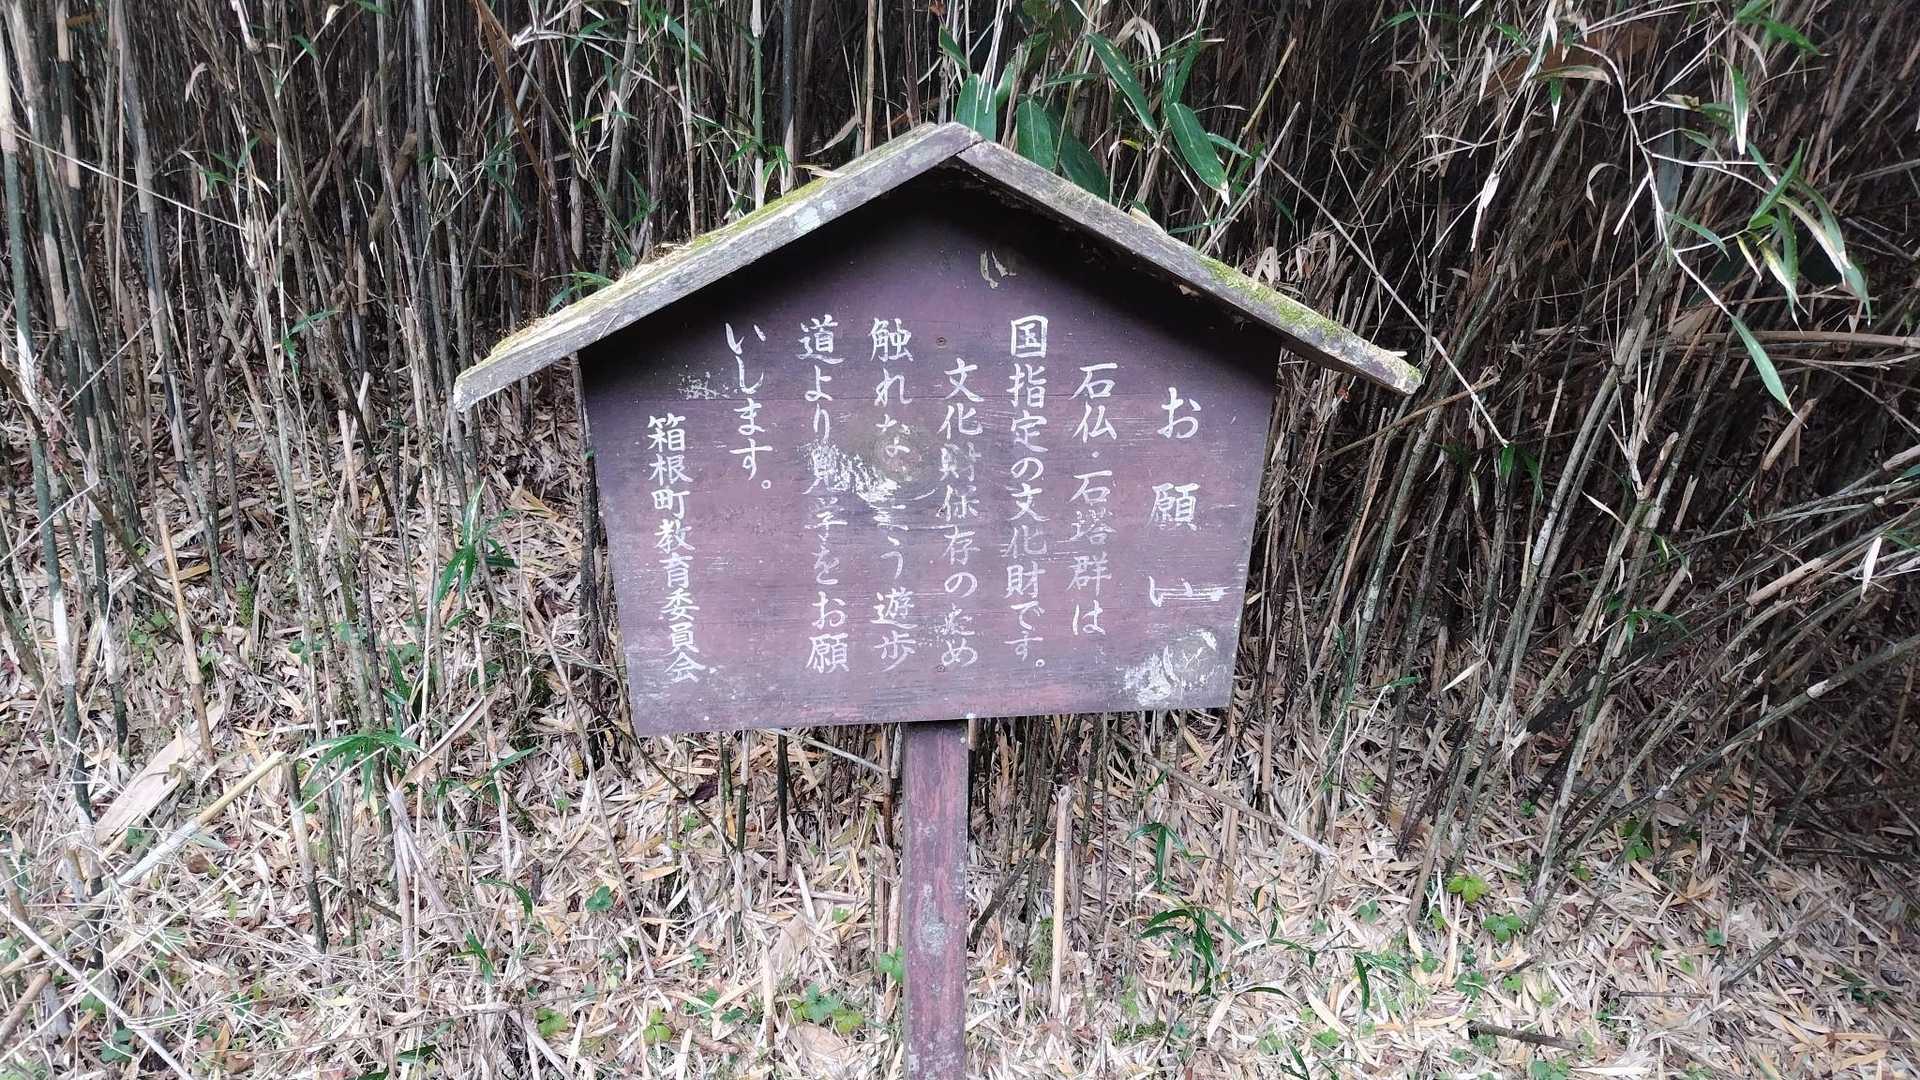 お願い
石仏・石塔群は
国指定の文化財です。
文化財保存のため
触れな よう遊歩
道より見学をお願
いします。
箱根町教育委員会